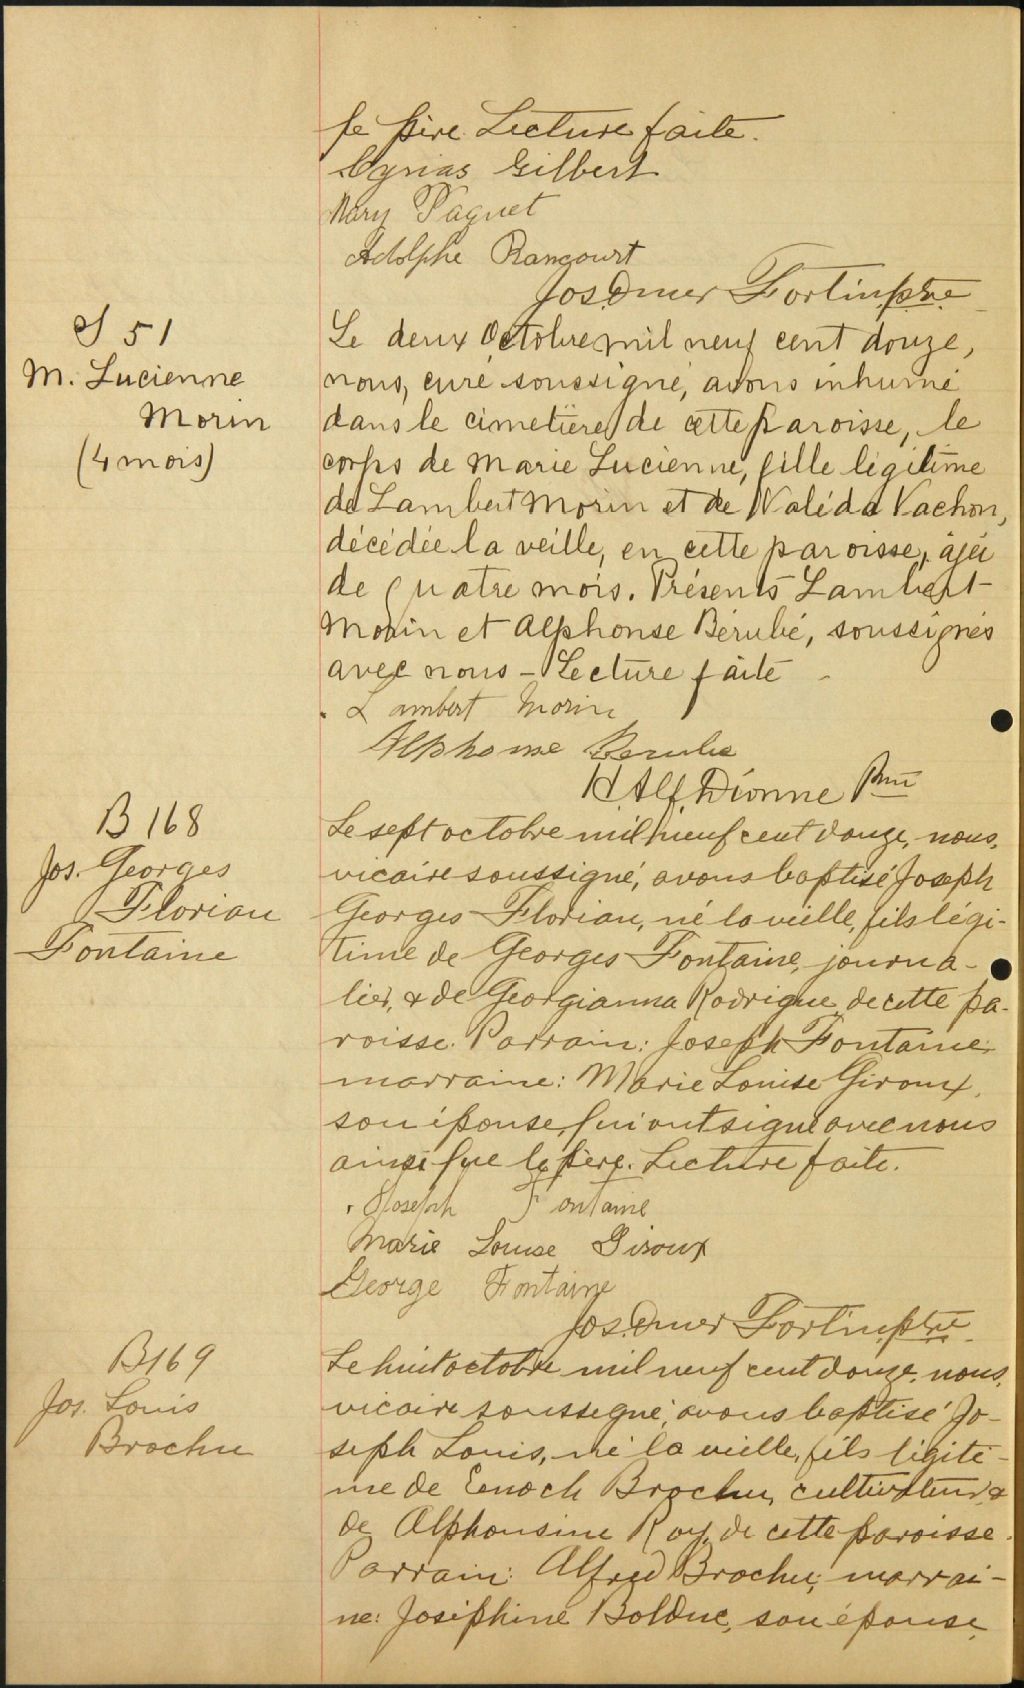 le père. Lecture faite.
Cyrias Gilbert
Mary Paquet
Adolphe Rancourt
Jos. Omer Fortin ptre
S 51
M. Lucienne
Morin
(4 mois)
Le deux Octobre mil neuf cent douze,
nous, curé soussigné, avons inhumé
dans le cimetière de cette Paroisse, le
corps de Marie Lucienne, fille légitime
de Lambert Morin et de Valéda Vachon,
décédée la veille, en cette paroisse, âgée
de quatre mois. Présents Lambert
Morin et Alphonse Bérubé, soussignés
avec nous - Lecture faite -
Lambert Morin
Alphonse Berube
H. Alf. Dionne Ptre
B 168
Jos. Georges
Florian
Fontaine
Le sept octobre mil neuf cent douze, nous,
vicaire soussigné, avons baptisé Joseph
Georges Florian, né la veille, fils légi-
time de Georges Fontaine, journa-
lier, & de Georgianna Rodrigue, de cette pa-
roisse. Parrain: Joseph Fontaine;
marraine: Marie Louise Giroux,
son épouse, qui ont signé avec nous
ainsi que le père. Lecture faite.
Joseph Fontaine
Marie Louise Giroux
George Fontaine
Jos. Omer Fortin ptre
B 169
Jos. Louis
Brochu
Le huit octobre mil neuf cent douze, nous,
vicaire soussigné, avons baptisé Jo-
seph Louis, né la veille, fils légiti-
me de Enoch Brochu, cultivateur, &
de Alphonsine Roy, de cette paroisse.
Parrain: Alfred Brochu; marrai-
ne: Joséphine Bolduc, son épouse,